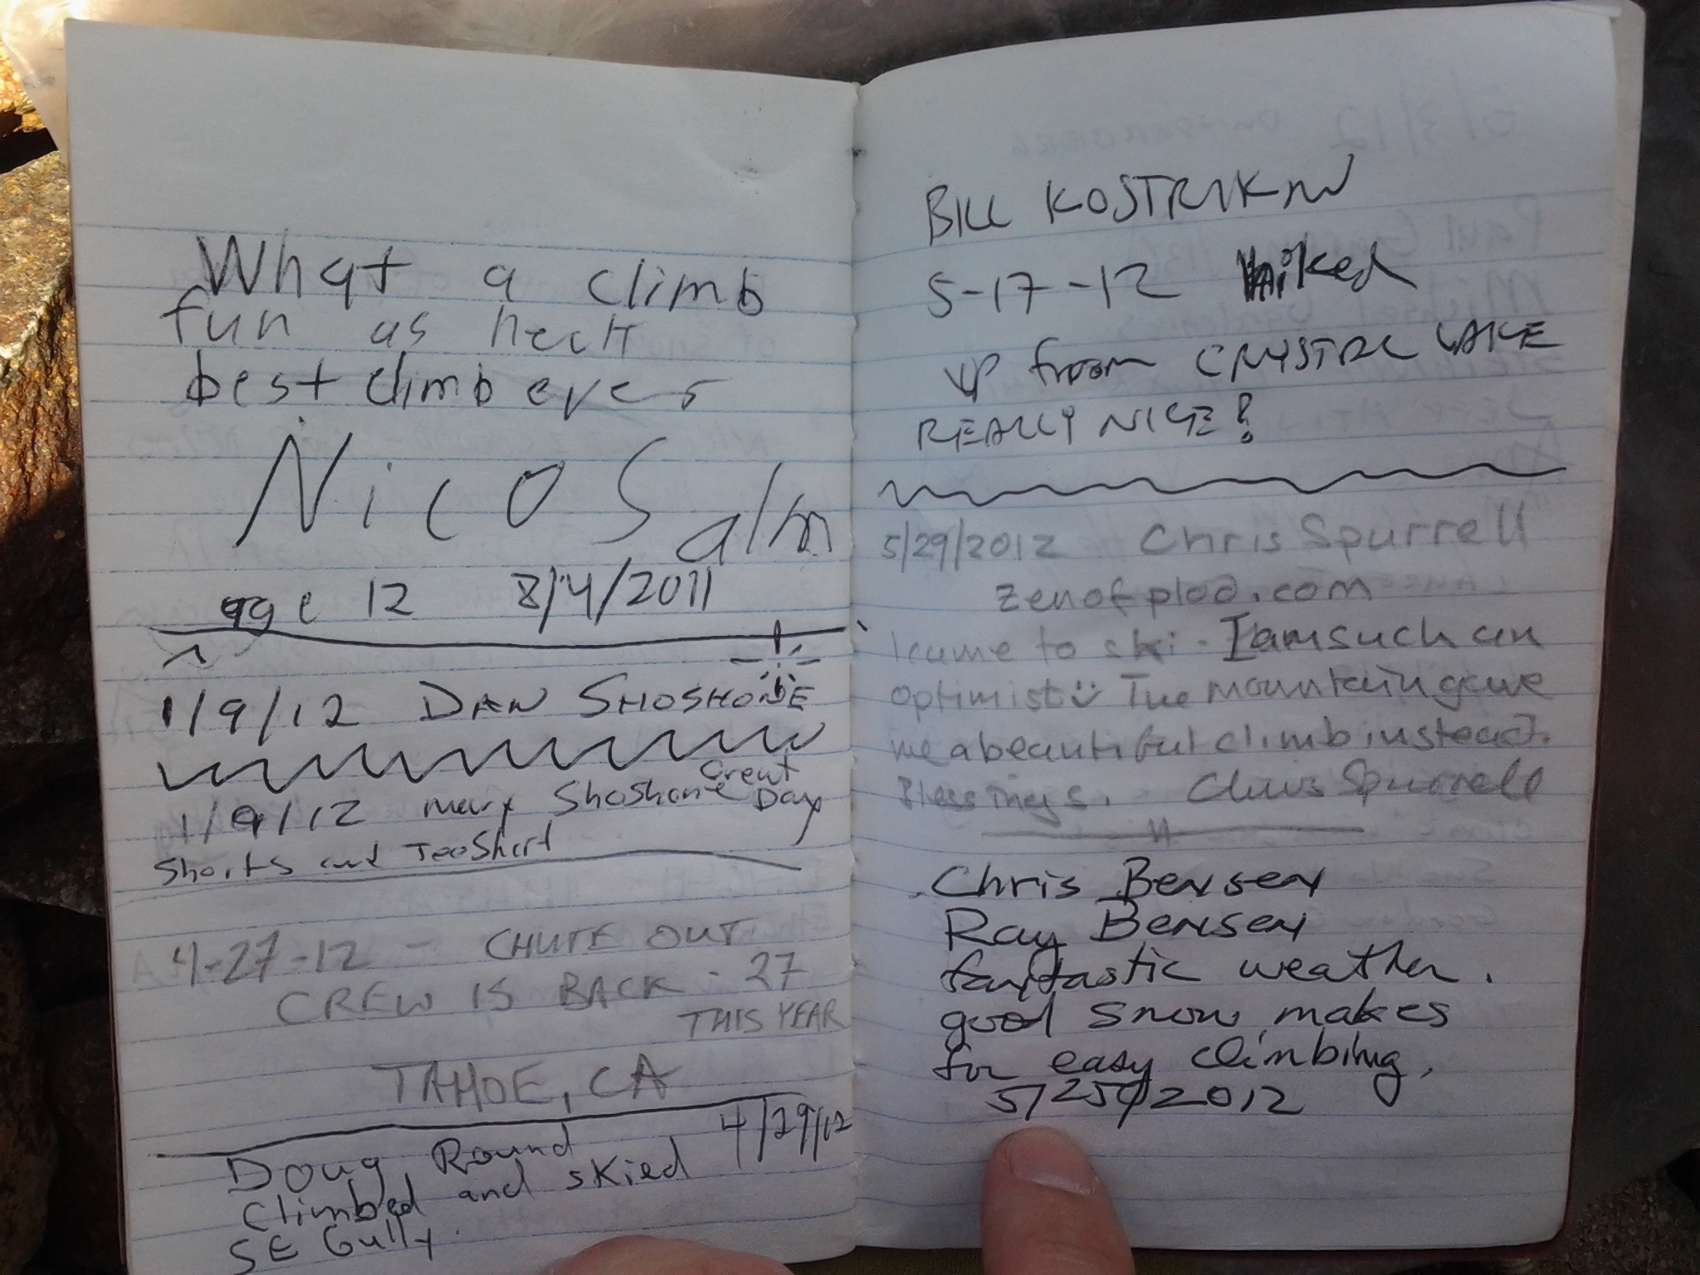 What a climb
fun as heck
best climb ever
Nico Salm
age 12 8/4/2011
1/9/12 DAN SHOSHONE
1/9/12 Mary Shoshone Great Day
Shorts and Tee Shirt
4-27-12 - CHUTE OUT
CREW IS BACK - 27
THIS YEAR
TAHOE, CA
Doug Round 4/29/12
Climbed and skied
SE Gully.
BILL KOSTRIKIN
5-17-12 Hiked
UP from CRYSTAL LAKE
REALLY NICE!
5/29/2012 Chris Spurrell
zenofplod.com
I came to ski - I am such an
optimist :) The mountain gave
me a beautiful climb instead.
Blessings. Chris Spurrell
Chris Bensen
Ray Bensen
fantastic weather.
good snow makes
for easy climbing.
5/25/2012